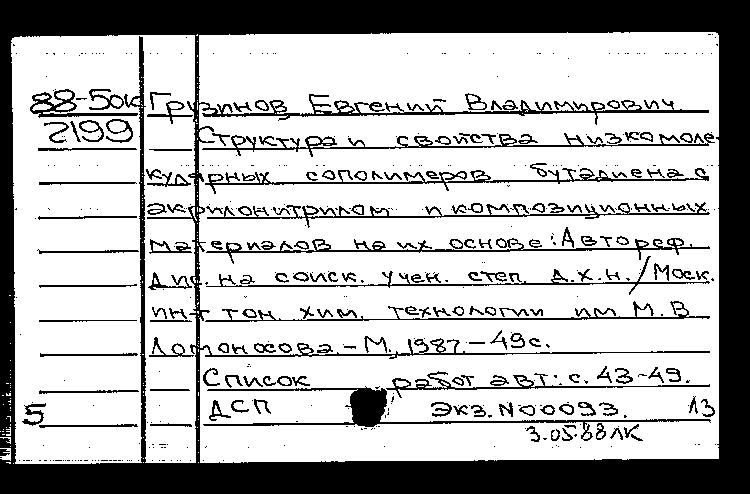 88-5ок Грузинов Евгений Владимирович
2199 Структура и свойства низкомоле-
кулярных сополимеров бутадиена с
акрилонитрилом и композиционных
материалов на их основе: Автореф.
дис. на соиск. учен. степ. д.х.н. / Моск.
ин-т тон. хим. технологии им М.В
Ломоносова.-М., 1987.-49с.
Список работ авт.: с. 43-49.
5 ДСП Экз. N00093. 13
3.05.88 ЛК